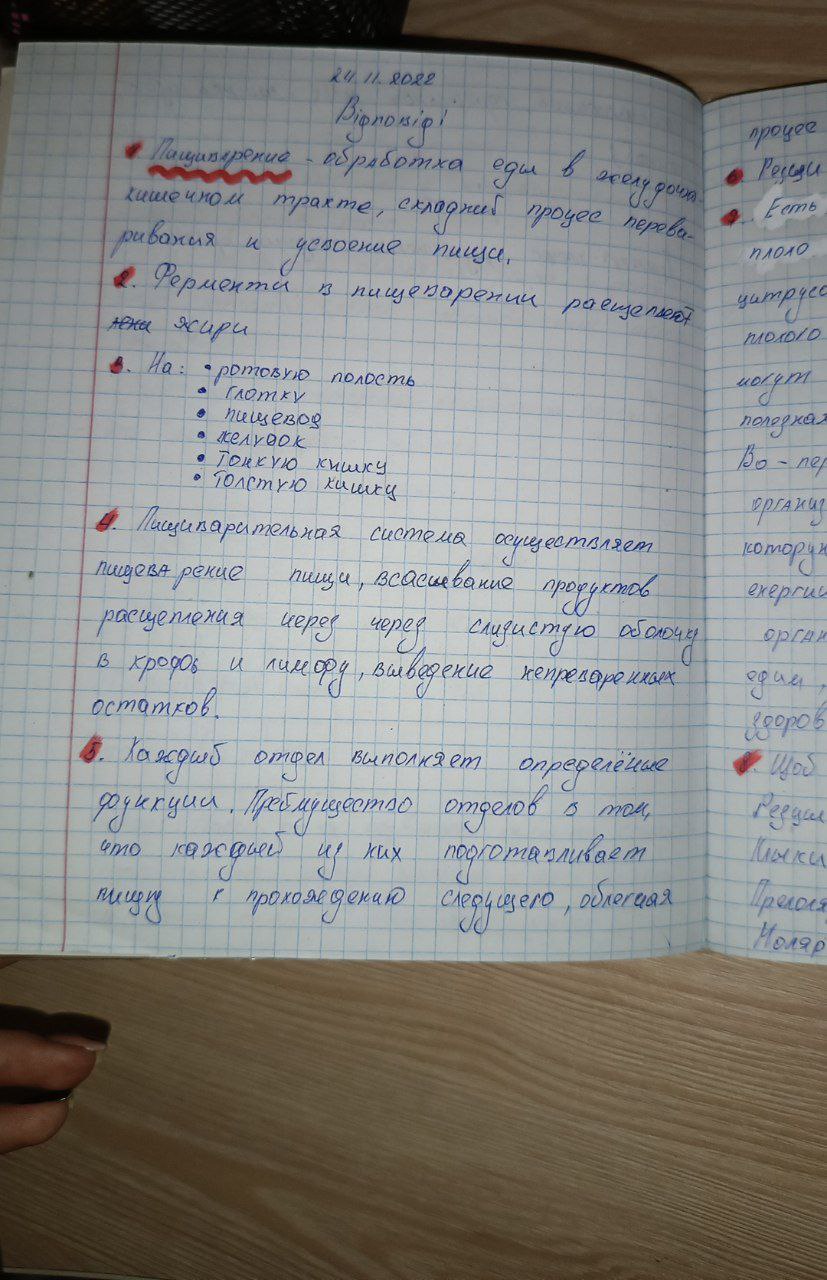 24.11.2022
Відповіді
1. Пащиварение - обработка еды в желудочно-
кишечном тракте, складний процес перева-
ривания и усвоение пищи.
2. Ферменти в пищеварении расщепляют
жири
3. На: • ротовую полость
• глотку
• пищевод
• желудок
• тонкую кишку
• толстую кишку
4. Пищиварительная система осуществляет
пищеварение пищи, всасывание продуктов
расщепления через через слизистую оболочку
в кровь и лимфу, выведение непреваренных
остатков.
5. Каждый отдел выполняет определёние
функции. Преймущество отделов в том,
что каждый из них подготапливает
пищу к прохождению следущего, облегчая
процес
6. Резци
7. Есть
плохо
цитрусо
плохого
могут
полезная
Во - пер
организ
которую
енергии
орган
едим,
здоров
8. Щоб
Резци
Клыки
Моляр